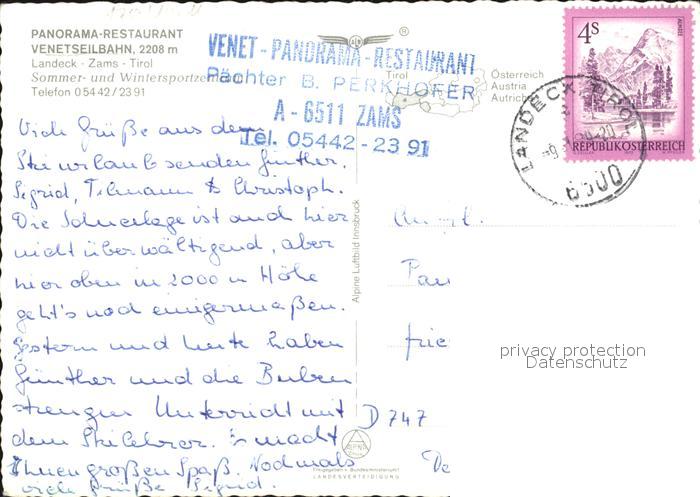 PANORAMA-RESTAURANT
VENETSEILBAHN, 2208 m
Landeck - Zams - Tirol
Sommer- und Wintersportzentrum
Telefon 0 54 42 / 23 91
VENET-PANORAMA-RESTAURANT
Pächter B. PERKHOFER
A-6511 ZAMS
Tel. 05442-23 91
®
Tirol
Österreich
Austria
Autriche
4S
ALMSEE
REPUBLIK ÖSTERREICH
LANDECK, TIROL
6500
Viele Grüße aus dem
Skiurlaub senden Günther,
Sigrid, Tilmann & Christoph.
Die Schneelage ist auch hier
nicht überwältigend, aber
hier oben in 2000 m Höhe
geht's noch einigermaßen.
Gestern und heute haben
Günther und die Buben
strengen Unterricht mit
dem Skilehrer. Es macht
Ihnen großen Spaß. Nochmals
viele Grüße Sigrid.
Alpine Luftbild Innsbruck
Fam
frie
D 747
De
Freigegeben v. Bundesministerium f.
LANDESVERTEIDIGUNG
privacy protection
Datenschutz